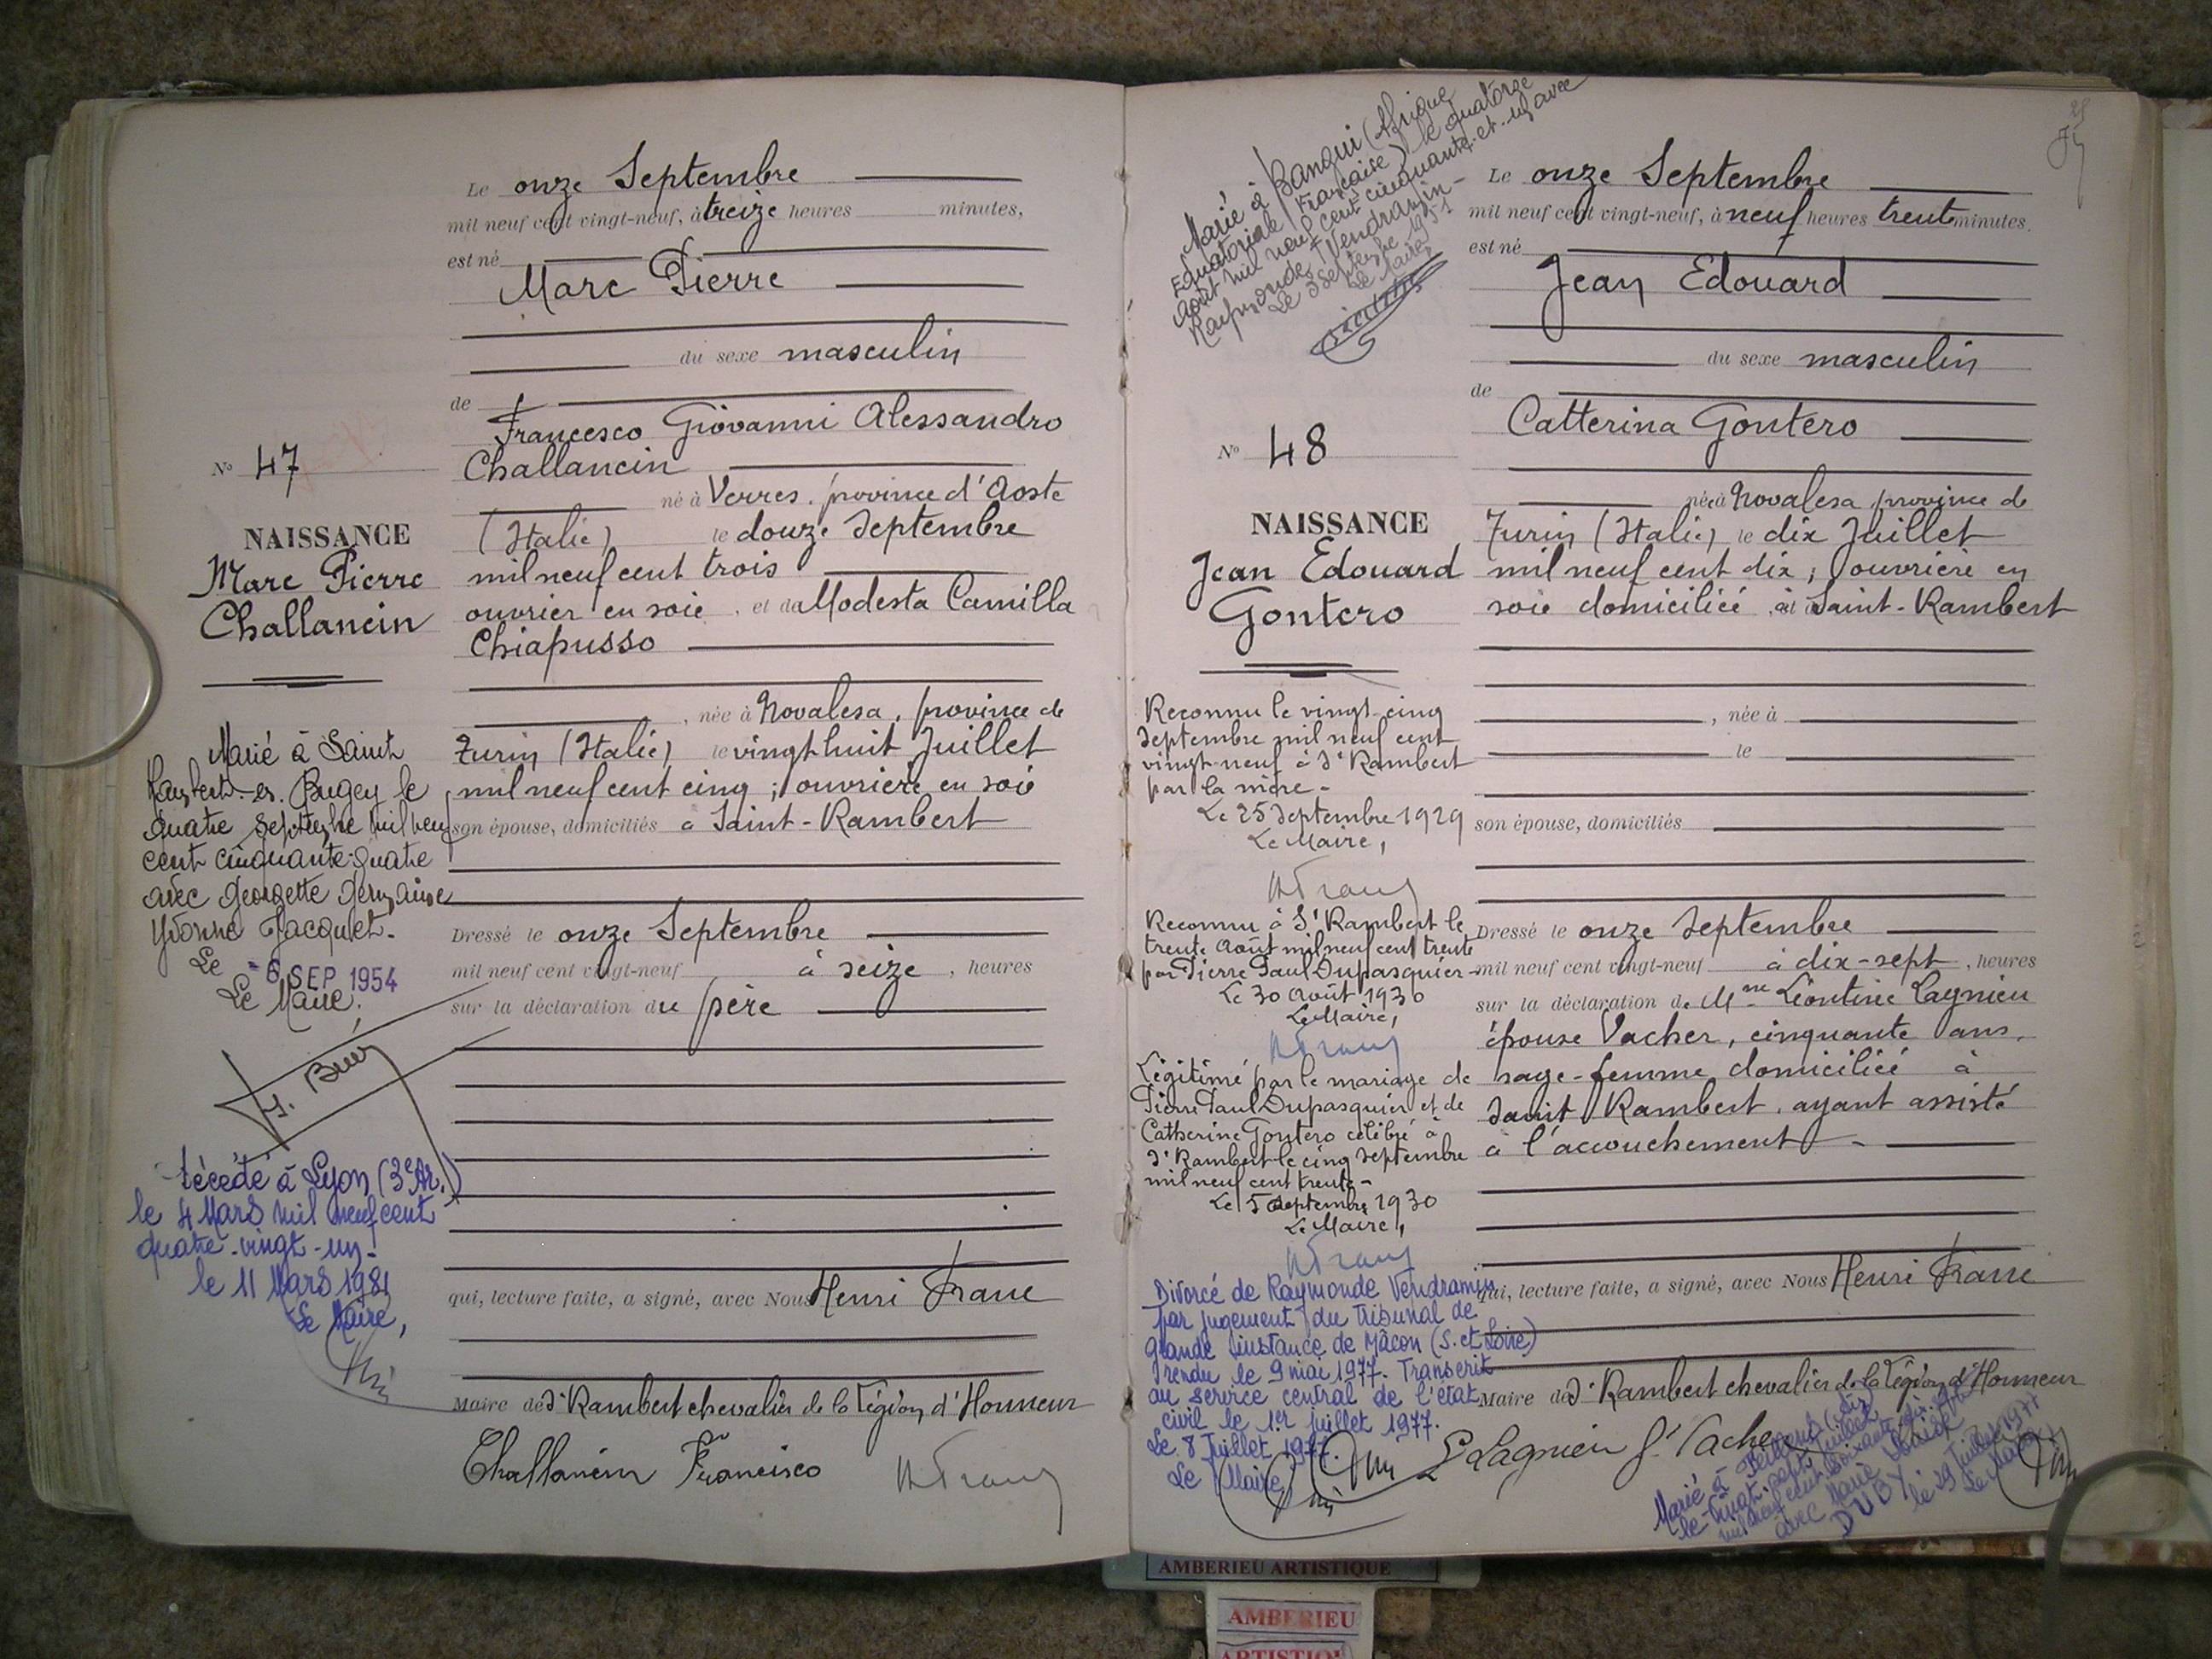 Le onze Septembre
mil neuf cent vingt-neuf, à treize heures minutes,
est né
Marc Pierre
du sexe masculin
de
Francesco Giovanni Alessandro
Challancin
né à Verres, province d'Aoste
(Italie) le douze Septembre
mil neuf cent trois
ouvrier en soie, et de Modesta Camilla
Chiapusso
, née à Novalesa, province de
Turin (Italie) le vingt huit Juillet
mil neuf cent cinq ; ouvrière en soie
son épouse, domiciliés à Saint-Rambert
Dressé le onze Septembre
mil neuf cent vingt-neuf à seize, heures
sur la déclaration du père
qui, lecture faite, a signé, avec Nous Henri Franc
Maire de St Rambert chevalier de la Légion d'Honneur
Challancin Francisco
HFranc
No 47
NAISSANCE
Marc Pierre
Challancin
Marié à Saint
Rambert-en-Bugey le
quatre septembre mil neuf
cent cinquante-quatre
avec Georgette Germaine
Yvonne Jacquet.
Le - 6 SEP 1954
Le Maire.
Décédé à Lyon (3e Ar.)
le 4 Mars mil neuf cent
quatre-vingt-un.
le 11 Mars 1981
Le Maire,
Marié à Bangui (Afrique
Equatoriale Française) le quatorze
Août mil neuf cent cinquante-et-un avec
Raymonde Vendramin-
Le 3 Septembre 1951
Le Maire
Le onze Septembre
mil neuf cent vingt-neuf, à neuf heures trente minutes.
est né
Jean Edouard
du sexe masculin
de
Catterina Gontero
née à Novalesa province de
Turin (Italie) le dix Juillet
mil neuf cent dix ; ouvrière en
soie domiciliée à Saint-Rambert
, née à
le
son épouse, domiciliés
Dressé le onze Septembre
mil neuf cent vingt-neuf à dix-sept, heures
sur la déclaration de Mme Léontine Lagnieu
épouse Vacher, cinquante ans,
sage-femme domiciliée à
Saint Rambert, ayant assisté
à l'accouchement
qui, lecture faite, a signé, avec Nous Henri Franc
Maire de St Rambert chevalier de la Légion d'Honneur
L Lagnieu f. Vacher
HFranc
No 48
NAISSANCE
Jean Edouard
Gontero
Reconnu le vingt-cinq
Septembre mil neuf cent
vingt-neuf à St Rambert
par la mère -
Le 25 Septembre 1929
Le Maire,
HFranc
Reconnu à St Rambert le
trente Août mil neuf cent trente
par Pierre Paul Dupasquier -
Le 30 Août 1930
Le Maire,
HFranc
Légitimé par le mariage de
Pierre Paul Dupasquier et de
Catherine Gontero célébré à
St Rambert le cinq Septembre
mil neuf cent trente -
Le 5 Septembre 1930
Le Maire,
HFranc
Divorcé de Raymonde Vendramin
par jugement du Tribunal de
Grande instance de Mâcon (S. et Loire)
rendu le 9 mai 1977. Transcrit
au service central de l'état
civil le 1er juillet 1977.
Le 8 Juillet 1977.
Le Maire
Marié à
le vingt-sept Juillet
mil neuf cent soixante-dix-sept
avec Marie Louise
DUBY
le 29 Juillet 1977
Le Maire
AMBERIEU ARTISTIQUE
AMBERIEU
ARTISTIQUE